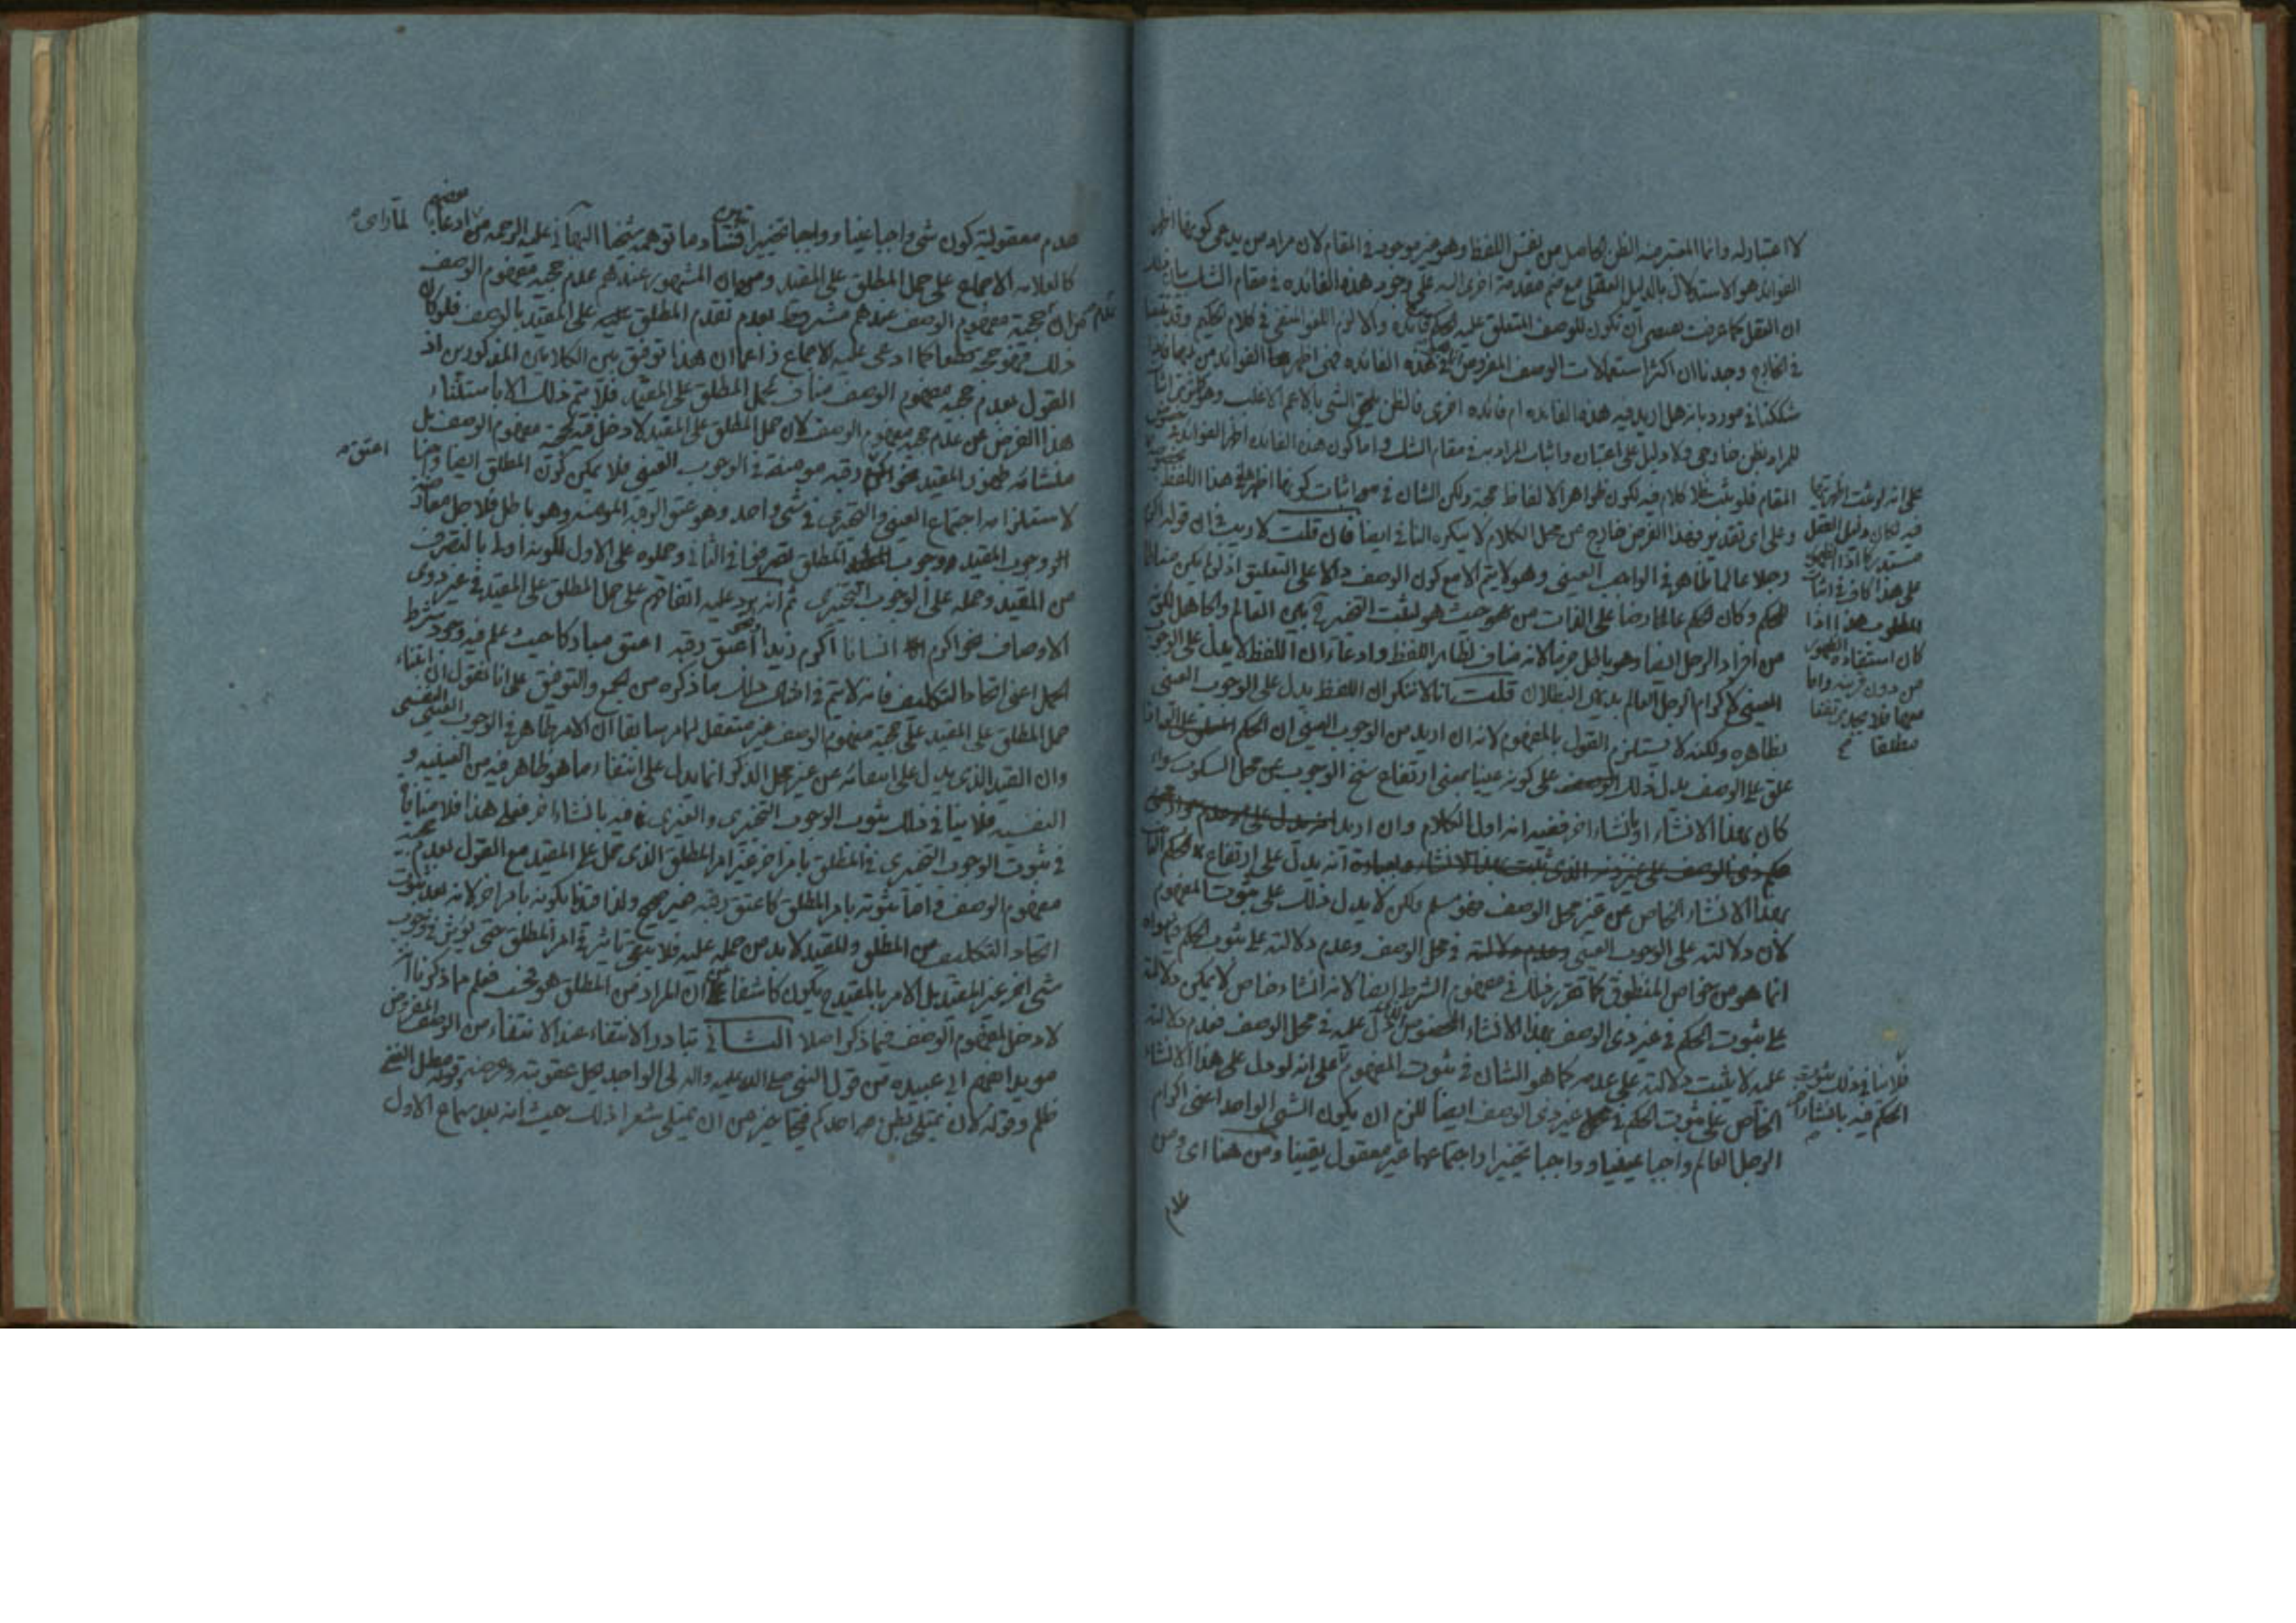 لا اعتبار له وانما المعتبر منه الظن الحاصل من نفس اللفظ وهو غير موجود في المقام لان مراد من يدعي كونها اظهر
الفوائد هو الاستدلال بالدليل العقلي مع ضم مقدمة اخرى اليه على وجود هذه الفائده في مقام الشك
ان العقل كما عرفت ان تكون للوصف المتعلق عليه الحكم فائده والا لزم اللغو المنفي في كلام الحكيم وقد
في الخارج وجدنا ان اكثر استعمالات الوصف المفروض هذه الفائده فهي اظهر الفوائد من
شككنا في مورد بانه هل اريد فيه هذه الفايده ام فائده اخرى فالظن يلحق الشي بالاعم الاغلب وهو
للمراد بظن خارجي ولا دليل على اعتباره واثبات المراد به في مقام الشك واما كون هذه الفائده اظهر الفوائد
المقام فلو ثبت فلا كلام فيه لكون ظواهر الالفاظ حجة ولكن الشان في اثبات كونها اظهر في هذا اللفظ
وعلى اي تقدير فهذا الفرض خارج عن محل الكلام لا ينكره النافي ايضا فان قلت لا ريب في ان قوله اكرم
رجلا عالما ظاهر في الواجب العيني وهو لا يتم الا مع كون الوصف دالا على التعليق اذ لو لم يكن
للحكم وكان الحكم عارضا على الذات من هو حيث هو لثبت التخيير في بين العالم والجاهل لكونه
من افراد الرجل ايضا وهو باطل جزما لانه مناف لظاهر اللفظ وادعاء ان اللفظ لا يدل على الوجوب
العيني لاكرام الرجل العالم بديهي البطلان قلت انا لا ننكر ان اللفظ يدل على الوجوب العيني
بظاهره ولكنه لا يستلزم القول بالمفهوم لانه ان اريد من الوجوب العيني ان الحكم
علق على الوصف يدل ذلك على كونه عينيا بمعنى ارتفاع سنخ الوجوب عن محل السكوت سواء
كان بهذا الانشاء او بانشاء اخر ففيه انه اول الكلام وان اريد
انه يدل على ارتفاع الحكم
بهذا الانشاء الخاص عن غير محل الوصف فهو مسلم ولكن لا يدل ذلك على ثبوت المفهوم
لان دلالته على الوجوب العيني في محل الوصف وعدم دلالته على ثبوت الحكم فيما سواه
انما هو من خواص المنطوق كما تقرر ذلك في مفهوم الشرط ايضا لانه انشاء خاص لا يمكن دلالة
على ثبوت الحكم في غير ذي الوصف بهذا الانشاء عليه في محل الوصف فعدم دلالته
عليه لا يثبت دلالته على عدمه كما هو الشان في ثبوت المفهوم على انه لو دل على هذا الانشاء
الخاص على ثبوت الحكم في غير ذي الوصف ايضا للزم ان يكون الشي الواحد اعني اكرام
الرجل العالم واجبا عينيا وواجبا تخييرا واجتماعهما غير معقول يقينا ومن هنا اي ومن
على انه لو ثبت اظهريتها
فيه لكان دليل العقل
مستدركا اذ الظهور
على هذا كاف في اثبات
المطلوب هذا اذا
كان استفادة الظهور
من دون قرينه واما
معها فلا يجدي نفعا
مطلقا
فلا ينافي ذلك ثبوت
الحكم فيه بانشاء اخر
عدم
عدم معقولية كون شي واجبا عينيا وواجبا تخييرا فساد ما توهمه شيخنا البهائي عليه الرحمه من ادعاء
لما راى
كالعلامه الاجماع على حمل المطلق على المقيد وان المشهور عندهم عدم حجيه مفهوم الوصف
ان حجية مفهوم الوصف عندهم مشروط بعدم تقدم المطلق عليه على المقيد بالوصف فلو كان
ذلك فهو حجه قطعا كما ادعي عليه الاجماع زاعما ان هذا توفيق بين الكلامين المذكورين اذ
القول بعدم حجيه مفهوم الوصف مناف لحمل المطلق على المقيد فلا يتم ذلك الا باستثناء
هذا الفرض عن عدم حجيه مفهوم الوصف لان حمل المطلق على المقيد لا دخل فيه لحجية مفهوم الوصف بل
منشائه ظهور المقيد نحو رقبه مومنه في الوجوب العيني فلا يمكن كون المطلق ايضا واجبا
اعتق
لاستلزامه اجتماع العيني والتخييري في شي واحد وهو عتق الرقبه المومنه وهو باطل فلاجل
وجوب المقيد ووجوب المطلق تصرفوا في الثاني وحملوه على الاول لكونه اولى بالتصرف
من المقيد وحمله على الوجوب التخييري ثم انه يرد عليه اتفاقهم على حمل المطلق على المقيد في غير ذوي
الاوصاف نحو اكرم انسانا اكرم زيدا اعتق رقبه اعتق مباركا حيث علم فيه وجود شرط
الحمل اعني اتحاد التكليف فانه لا يتم في امثال ذلك ما ذكره من الجمع والتوفيق على انا نقول ان ابتناء
حمل المطلق على المقيد على حجية مفهوم الوصف غير متعقل لما مر سابقا ان الامر ظاهر في الوجوب العيني النفسي
وان القيد الذي يدل على انتفائه عن غير محل الذكر انما يدل على انتفاء ما هو ظاهر فيه من العينيه و
النفسيه فلا ينافي ذلك ثبوت الوجوب التخييري والغيري فيه بانشاء اخر فعلى هذا فلا منافاة
في ثبوت الوجوب التخييري في المطلق بامر اخر غير امر المطلق الذي حمل على المقيد مع القول بعدم حجية
مفهوم الوصف واما ثبوته بامر المطلق كاعتق رقبه فغير صحيح ولذا قيدنا بكونه بامر اخر لانه بعد ثبوت
اتحاد التكليف من المطلق والمقيد لابد من حمله عليه فلا يبقى تاثير في امر المطلق حتى يوثر في وجوب
شي اخر غير المقيد بل الامر بالمقيد ح يكون كاشفا ان المراد من المطلق هو فعلم مما ذكرنا ان
لا دخل لمفهوم الوصف فيما ذكر اصلا الثاني تبادر الانتفاء عند الانتفاء من الوصف المفروض
مويدا بفهم ابي عبيده من قول النبي صلى الله عليه واله لي الواجد يحل عقوبته وعرضه وقوله مطل الغني
ظلم وقوله لان يمتلي بطن احدكم قيحا خير من ان يمتلي شعرا ذلك حيث انه بعد سماع الاول